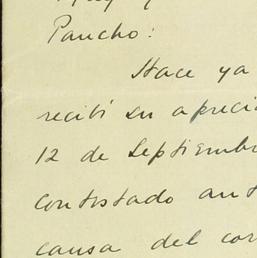 Pancho:
Hace ya
recibí su apreci
12 de Septiembr
contestado ant
causa del cor